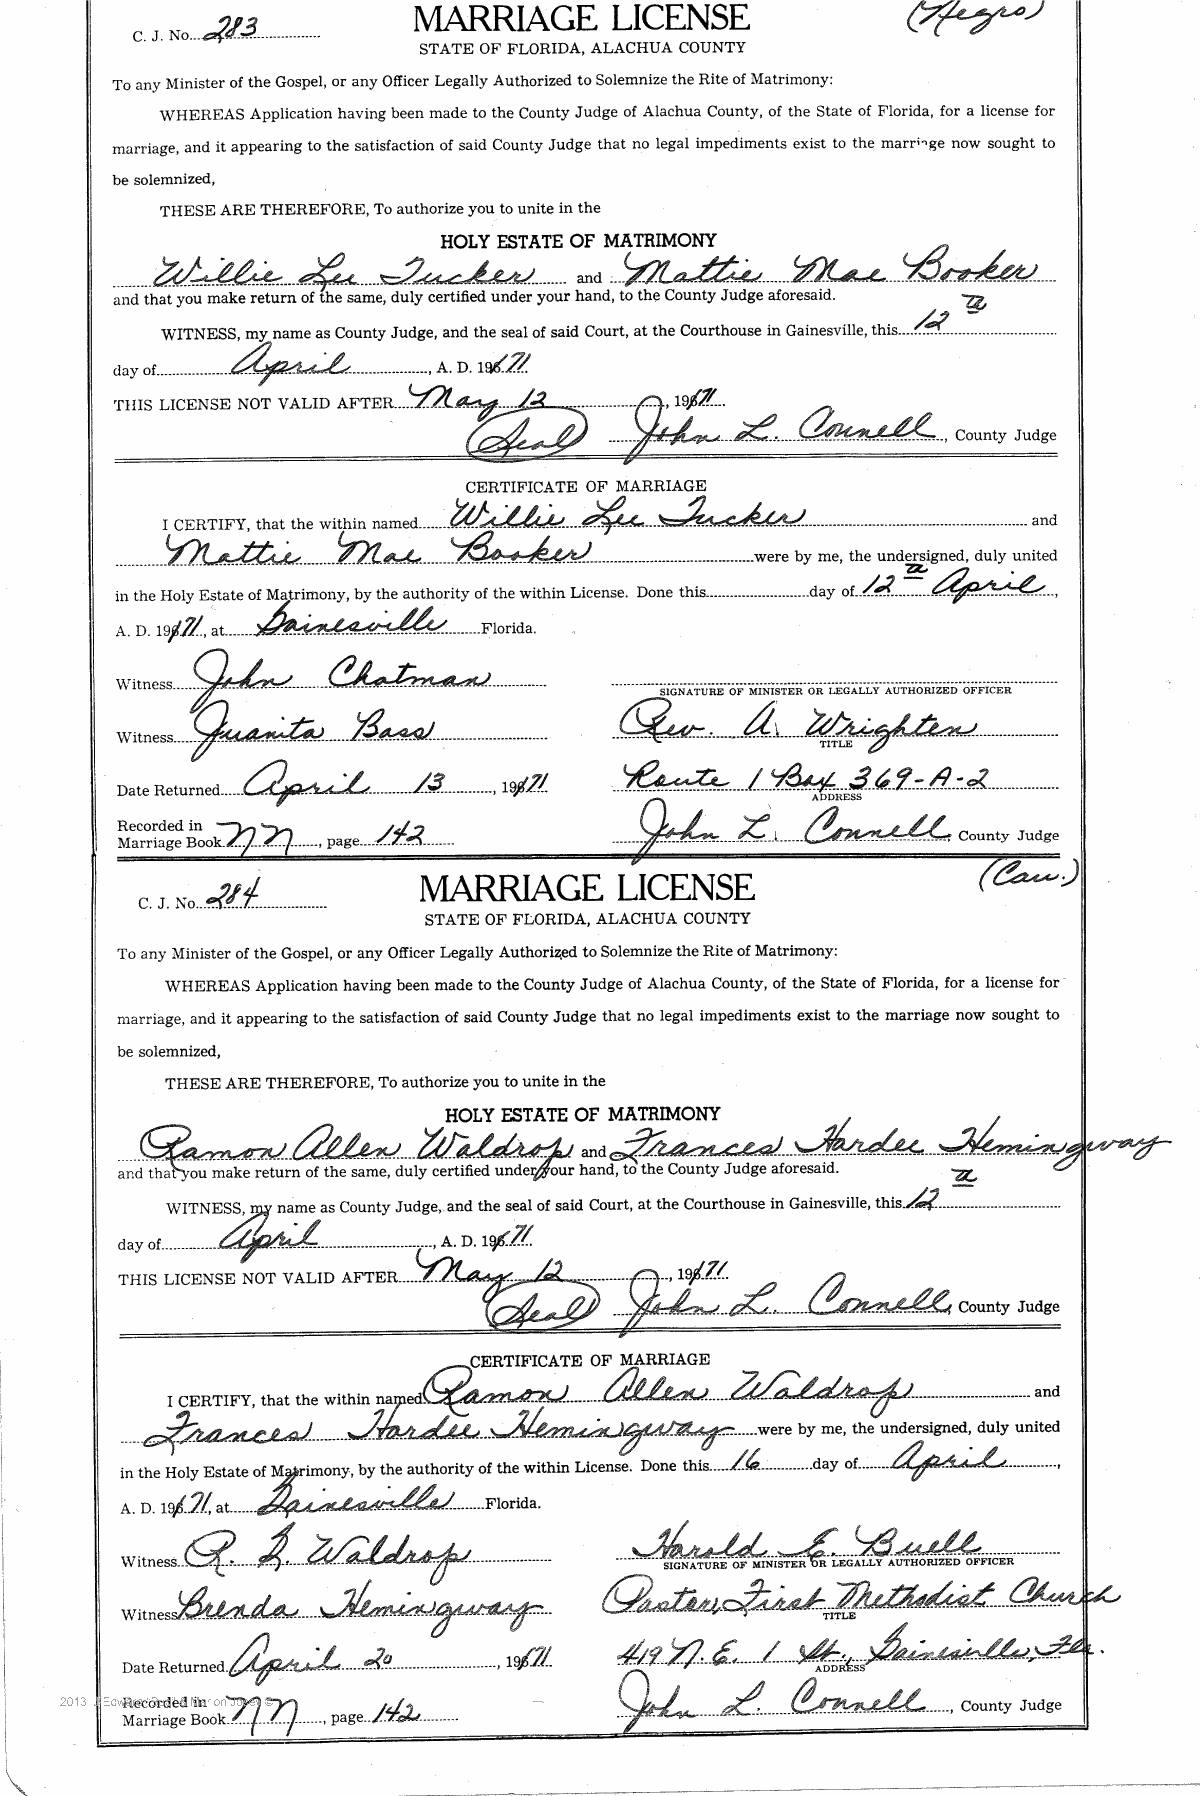 C. J. No. 283 MARRIAGE LICENSE (Negro)
STATE OF FLORIDA, ALACHUA COUNTY
To any Minister of the Gospel, or any Officer Legally Authorized to Solemnize the Rite of Matrimony:
WHEREAS Application having been made to the County Judge of Alachua County, of the State of Florida, for a license for
marriage, and it appearing to the satisfaction of said County Judge that no legal impediments exist to the marriage now sought to
be solemnized,
THESE ARE THEREFORE, To authorize you to unite in the
HOLY ESTATE OF MATRIMONY
Willie Lee Tucker and Mattie Mae Booker
and that you make return of the same, duly certified under your hand, to the County Judge aforesaid.
WITNESS, my name as County Judge, and the seal of said Court, at the Courthouse in Gainesville, this 12th
day of April, A. D. 1971
THIS LICENSE NOT VALID AFTER May 12, 1971
(Seal) John L. Connell, County Judge
CERTIFICATE OF MARRIAGE
I CERTIFY, that the within named Willie Lee Tucker and
Mattie Mae Booker were by me, the undersigned, duly united
in the Holy Estate of Matrimony, by the authority of the within License. Done this day of 12th April,
A. D. 1971, at Gainesville Florida.
Witness John Chatman
SIGNATURE OF MINISTER OR LEGALLY AUTHORIZED OFFICER
Witness Juanita Bass Rev. A. Wrighten
TITLE
Date Returned April 13, 1971 Route 1 Box 369-A-2
ADDRESS
Recorded in
Marriage Book NN, page 142 John L. Connell, County Judge
C. J. No. 284 MARRIAGE LICENSE (Cau.)
STATE OF FLORIDA, ALACHUA COUNTY
To any Minister of the Gospel, or any Officer Legally Authorized to Solemnize the Rite of Matrimony:
WHEREAS Application having been made to the County Judge of Alachua County, of the State of Florida, for a license for
marriage, and it appearing to the satisfaction of said County Judge that no legal impediments exist to the marriage now sought to
be solemnized,
THESE ARE THEREFORE, To authorize you to unite in the
HOLY ESTATE OF MATRIMONY
Ramon Allen Waldrop and Frances Hardee Hemingway
and that you make return of the same, duly certified under your hand, to the County Judge aforesaid.
WITNESS, my name as County Judge, and the seal of said Court, at the Courthouse in Gainesville, this 12th
day of April, A. D. 1971
THIS LICENSE NOT VALID AFTER May 12, 1971
(Seal) John L. Connell, County Judge
CERTIFICATE OF MARRIAGE
I CERTIFY, that the within named Ramon Allen Waldrop and
Frances Hardee Hemingway were by me, the undersigned, duly united
in the Holy Estate of Matrimony, by the authority of the within License. Done this 16 day of April,
A. D. 1971, at Gainesville Florida.
Witness R. L. Waldrop Harold E. Buell
SIGNATURE OF MINISTER OR LEGALLY AUTHORIZED OFFICER
Witness Brenda Hemingway Pastor, First Methodist Church
TITLE
Date Returned April 20, 1971 419 N. E. 1 St., Gainesville, Fla.
ADDRESS
2013
Recorded in
Marriage Book NN, page 142 John L. Connell, County Judge